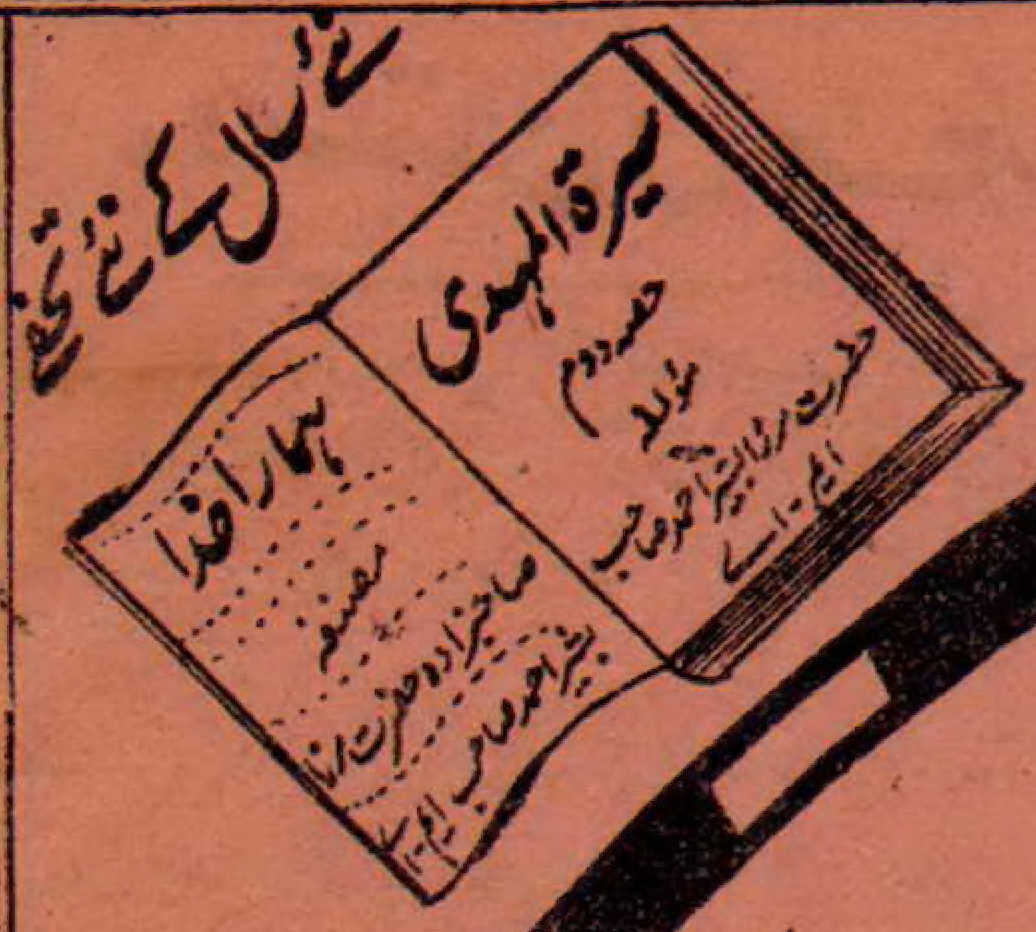 نئے سال کے نئے تحفے
سیرۃ المہدی
حصہ دوم
مؤلفہ
حضرت مرزا بشیر احمد صاحب
ایم-اے
ہمارا خدا
مصنفہ
صاحبزادہ حضرت مرزا
بشیر احمد صاحب ایم-اے